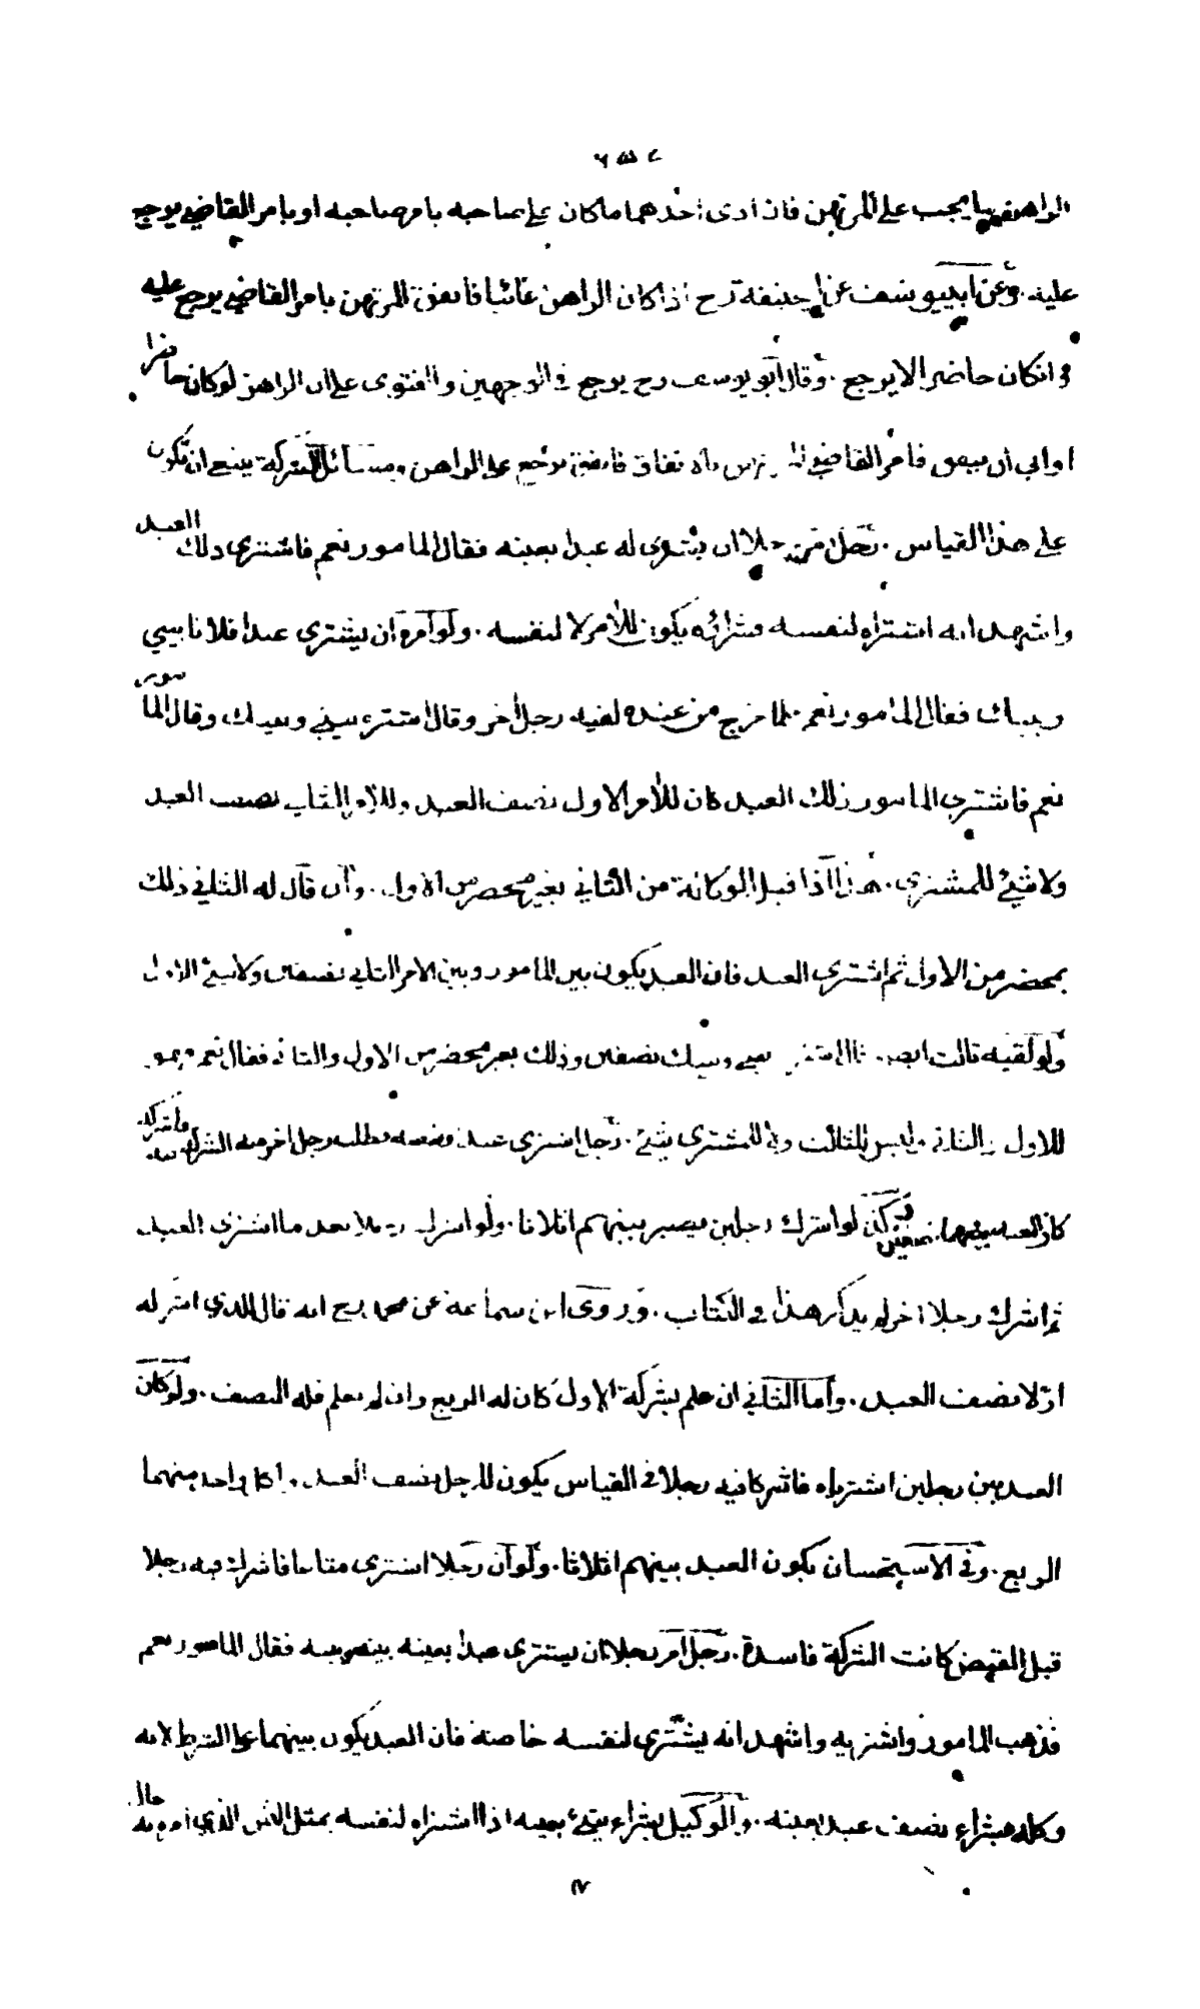 الراهن فيما يجب على المرتهن فان ادى احدهما ما كان على صاحبه بامر صاحبه او بامر القاضي يرجع
عليه . وعن ابي يوسف عن ابي حنيفة رح اذا كان الراهن غائبا فانفق المرتهن بامر القاضي يرجع عليه
وانكان حاضرا لا يرجع . وقال ابو يوسف رح يرجع في الوجهين والفتوى على ان الراهن لو كان حاضرا
او ابى ان ينفق فامر القاضي المرتهن بالانفاق فانفق يرجع على الراهن ومسائل الشركة ينبغي ان تكون
على هذا القياس . رجل امر رجلا ان يشتري له عبدا بعينه فقال المامور نعم فاشترى ذلك العبد
واشهد انه اشتراه لنفسه فشرائه يكون للآمر لا لنفسه . ولو امره ان يشتري عبدا فلانا بيني
وبينك فقال المامور نعم فلما خرج من عنده لقيه رجل آخر وقال اشتره بيني وبينك وقال المامور
نعم فاشترى المامور ذلك العبد كان للآمر الاول نصف العبد وللآمر الثاني نصف العبد
ولا شيئ للمشتري . هذا اذا قبل الوكالة من الثاني بغير محضر من الاول . وان قال له الثاني ذلك
بمحضر من الاول ثم اشترى العبد فان العبد يكون بين المامور وبين الآمر الثاني نصفين ولا شيئ للاول
ولو لقيه ثالث ايضا بيني وبينك نصفين وذلك بغير محضر من الاول والثاني فقال نعم فهو
للاول والثاني وليس للثالث ولا للمشتري شيئ . رجل اشترى عبدا وقبضه فطلب رجل اخر منه الشركة فيه فاشركه
كان العبد بينهما نصفين وكذا لو اشرك رجلين يصير بينهم اثلاثا . ولو اشرك رجلا بعد ما اشترى العبد
ثم اشرك رجلا اخر لم يذكر هذا في الكتاب . وروى ابن سماعة عن محمد رح انه قال للذي اشركه
اولا نصف العبد . واما الثاني ان علم بشركة الاول كان له الربع وان لم يعلم فله النصف . ولو كان
العبد بين رجلين اشترياه فاشركا فيه رجلا في القياس يكون للرجل نصف العبد . ولكل واحد منهما
الربع . وفي الاستحسان يكون العبد بينهم اثلاثا . ولو ان رجلا اشترى متاعا فاشرك فيه رجلا
قبل القبض كانت الشركة فاسدة . رجل امر رجلا ان يشتري عبدا بعينه بينه وبينه فقال المامور نعم
فذهب المامور واشتريه واشهد انه يشتري لنفسه خاصة فان العبد يكون بينهما على الشرط لانه
وكله بشراء نصف عبد بعينه . والوكيل بشراء شيئ بعينه اذا اشتراه لنفسه بمثل الثمن الذي امر به حال